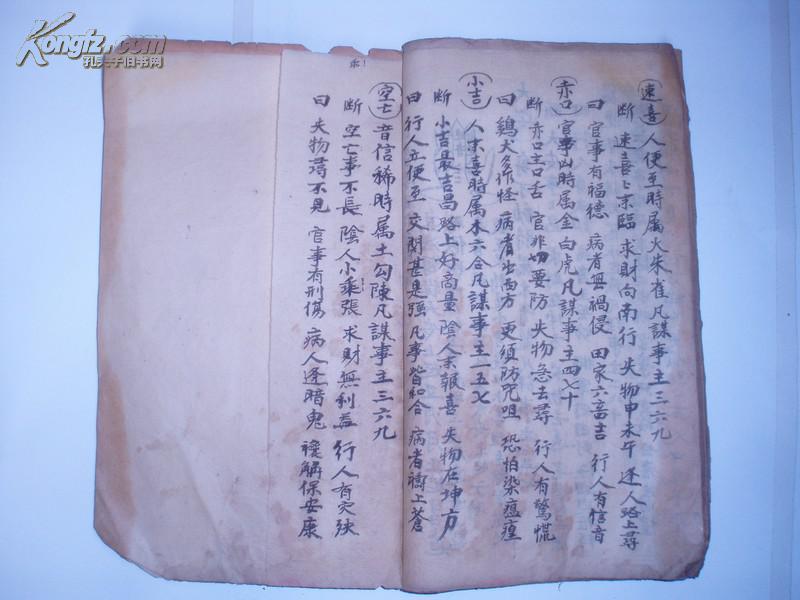 速喜 人便至時属火朱雀凡謀事主三六九
断 速喜喜来臨 求財向南行 失物申未午 逢人路上尋
曰 官事有福德 病者無禍侵 田家六畜吉 行人有信音
赤口 官事凶時属金白虎凡謀事主四七十
断 赤口主口舌 官非切要防 失物急去尋 行人有驚慌
曰 鷄犬多作怪 病者出西方 更須防咒咀 恐怕染瘟𤶊
小吉 人来喜時属木六合凡謀事主一五七
断 小吉最吉昌 路上好商量 陰人来報喜 失物在坤方
曰 行人立便至 交関甚是强 凡事皆和合 病者禱上蒼
空亡 音信稀時属土勾陳凡謀事主三六九
断 空亡事不長 陰人小乘張 求財無利益 行人有灾殃
曰 失物尋不見 官事有刑傷 病人逢暗鬼 禳解保安康
乖!
Kongfz.com
孔夫子旧书网